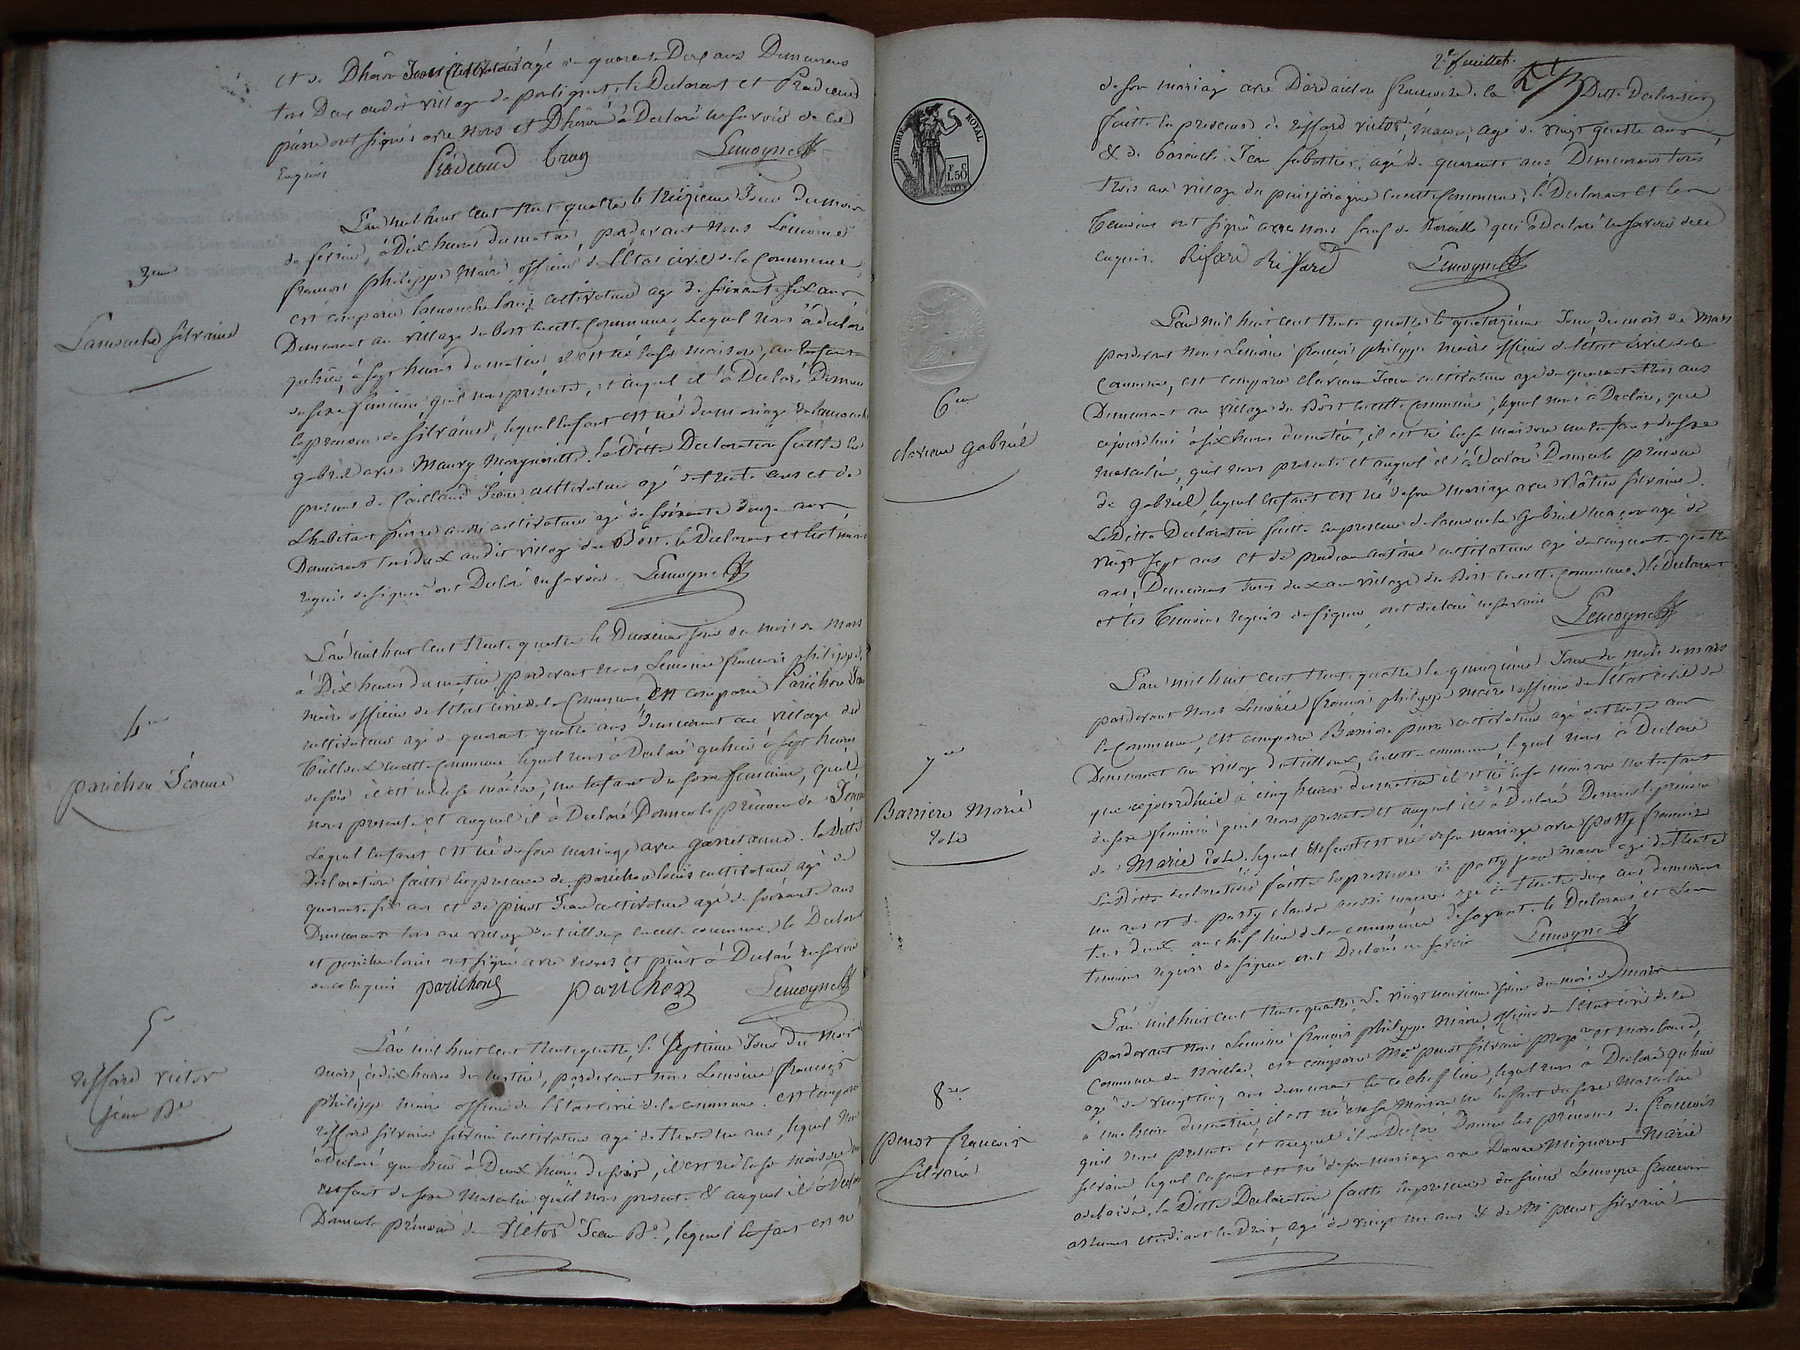 et de Dhéron Jean cultivateur agé de quarante Deux ans Demeurans
tous Deux audit village de , le Declarant et Pradeaud
ont signés avec Nous et Dhéron à Declaré ne savoir de ce
Enquis
Pradeaud
Lemoyne
L'an mil huit cent trente quatre le treizieme Jour du mois
de fevrier, à Dix heures du matin, pardevant Nous Lemoine
francois philippe Maire officier de l'Etat civil de la Commune
est comparu Lamouche Louis cultivateur agé de soixante six ans
Demeurant au village du Bost de cette Commune, Lequel Nous à declaré
qu'hier à sept heures du matin il est né en sa maison, un Enfant
de sexe feminin, qu'il nous presente, et auquel il à Declaré Donner
le prenom de Silvaine, lequel enfant est né du mariage de Lamouche
gabriel avec Maury Marguerite. la Ditte Declaration faitte en
presence de Caillaud Jean cultivateur agé de trente ans et de
Lhabitant pierre aussi cultivateur agé de soixante douze ans
Demeurant tous deux audit village du Bost. le Declarant et les temoins
requis de signer ont Declaré ne savoir. Lemoyne
3me
Lamouche Silvaine
L'an mil huit cent trente quatre le Deuxieme jour du mois de Mars
à Dix heures du matin pardevant nous Lemoine francois philippe
maire officier de l'Etat civil de la Commune, Est comparu Parichon Jean
cultivateur agé de quarante quatre ans demeurant au village de
Tuilloux de cette Commune lequel nous à Declaré qu'hier à sept heures
du soir il est né en sa maison, un Enfant du sexe feminin, qu'il
nous presente et auquel il à Declaré Donner le prénom de Jeanne
Lequel enfant est né de son mariage avec anne. la Ditte
Declaration faitte en presence de parichon louis cultivateur agé de
quarante six ans et de pinot Jean cultivateur agé de soixante ans
Demeurans tous au village de tuilloux de cette commune, le Declarant
et parichon louis ont signé avec Nous et pinot à Declaré ne savoir
de ce Enquis parichon parichon Lemoyne
4me
parichon Jeanne
L'an mil huit cent trente quatre, le Septieme Jour du Mois
mars, à dix heures du matin, pardevant nous Lemoine francois
philippe maire officier de l'Etat civil de la commune. est comparu
reffard silvain silvain cultivateur agé de trente un ans, lequel Nous
à declaré que hier à Deux heures du soir, il est né en sa maison un
enfant de sexe Masculin qu'il nous presente & auquel il à Declaré
Donner le prénom de Victor Jean Bte, lequel Enfant est né
5e
reffard victor
jean Bte
2e feuillet.
de son mariage avec Dardaillon francoise. la Ditte Declaration
faitte en presence de reffard victor, macon, agé de vingt quatre ans
& de Jean sabottier, agé de quarante ans Demeurans tous
trois au village du puijoraigne de cette Commune; le Declarant et les
Temoins ont signé avec nous sauf de qui à Declaré ne savoir de ce
enquis. Refard Reffard Lemoyne
TIMBRE ROYAL
1F.50
L'an mil huit cent trente quatre le quatorzieme Jour du mois de Mars
pardevant nous Lemoine francois philippe maire officier de l'Etat civil de la
Commune, est comparu clavieau Jean cultivateur agé de quarante trois ans
Demeurant au village du Bost de cette Commune, lequel nous à Declaré, que
cejourdhui à six heures du matin, il est né en sa maison un enfant de sexe
masculin, qu'il nous presente et auquel il à Declaré Donner le prénom
de gabriel, lequel enfant est né de son mariage avec silvaine.
La Ditte Declaration faitte en presence de Lamouche Gabriel macon agé de
vingt sept ans et de antoine cultivateur agé de cinquante quatre
ans, Demeurans tous deux au village du Bost de cette Commune, le Declarant
et les Temoins requis de signer, ont declaré ne savoir Lemoyne
6me
clavieau gabriel
L'an mil huit cent trente quatre le quinzieme Jour du mois de mars
pardevant Nous Lemoine francois philippe maire officier de l'Etat civil de
la Commune, est comparu Barriere pierre cultivateur agé de trente ans
Demeurant au village de tuilloux, de cette commune, lequel nous à Declaré
que cejourdhui à cinq heures du matin il est né en sa maison un Enfant
de sexe feminin qu'il nous presente et auquel il à Declaré Donner le prénom
de Marie , lequel Enfant est né de son mariage avec patty francoise
La Ditte declaration faitte en presence de patty jean macon agé de trente
un ans et de patty claude aussi macon agé de trente deux ans demeurans
tous deux au chef lieu de la commune de . le Declarant et les
temoins requis de signer ont Declaré ne savoir Lemoyne
7me
Barriere Marie
L'an mil huit cent trente quatre, Le vingt neuvieme jour du mois de mars
pardevant Nous Lemoine francois philippe Maire officier de l'Etat civil de la
Commune de , est comparu Mr. pinot silvain propre et marchand,
agé de vingt cinq ans demeurant en ce chef lieu, lequel nous à Declaré qu'hier
à une heure du matin, il est né en sa Maison un Enfant du sexe Masculin
qu'il nous presente et auquel il a Declaré Donner les prenoms de francois
silvain lequel enfant est né de son mariage avec Dame Migneret Marie
adelaide, la Ditte Declaration faitte en presence du sieur Lemoyne francois
etudiant en Droit, agé de vingt un ans & de Mr pinot silvain
8me
pinot francois
Silvain